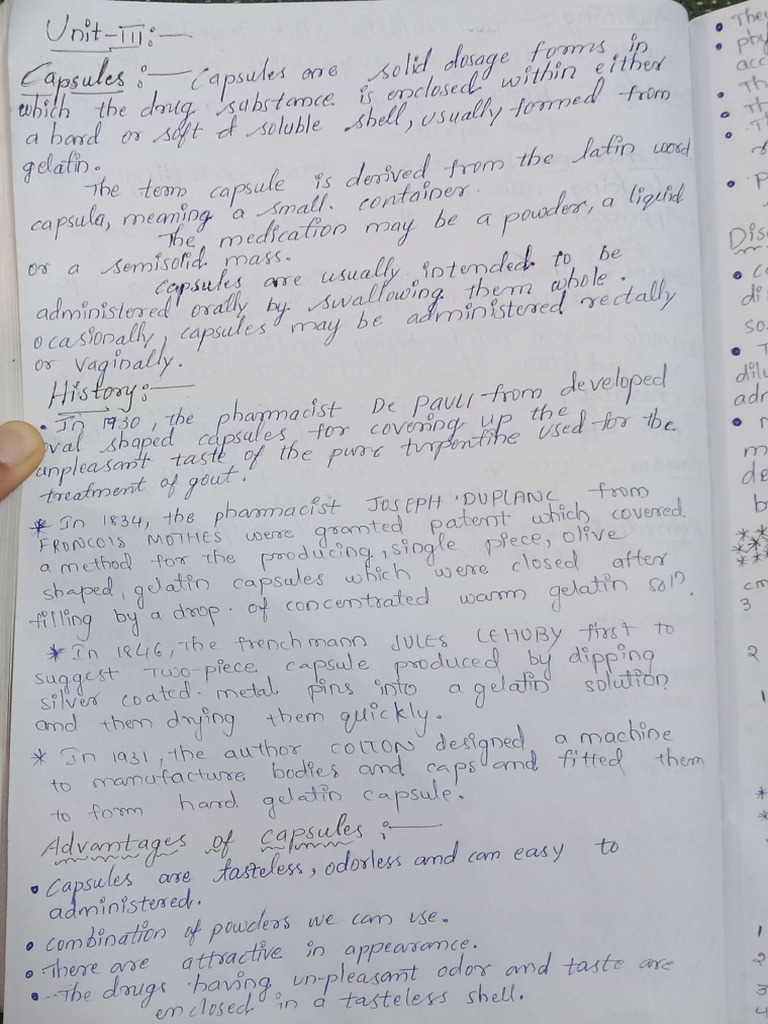 Unit-III:-
Capsules :- Capsules are solid dosage forms in
which the drug substance is enclosed within either
a hard or soft soluble shell, usually formed from
gelatin.
The term capsule is derived from the latin word
capsula, meaning a small. container.
The medication may be a powder, a liquid
or a semisolid mass.
capsules are usually intended to be
administered orally by swallowing them whole.
ocasionally, capsules may be administered rectally
or vaginally.
History:-
• In 1930, the pharmacist De PAULI from developed
oval shaped capsules for covering up the
unpleasant taste of the pure turpentine used for the
treatment of gout.
* In 1834, the pharmacist JOSEPH DUPLANC from
FRONCOIS MOTHES were granted patent which covered
a method for the producing, single piece, olive
shaped, gelatin capsules which were closed after
filling by a drop. of concentrated warm gelatin sol?
* In 1846, The frenchmann JULES LEHUBY first to
suggest Two-piece capsule produced by dipping
silver coated metal pins into a gelatin solution
and them drying them quickly.
* In 1931, the author COLTON designed a machine
to manufacture bodies and caps and fitted them
to form hard gelatin capsule.
Advantages of capsules :-
• Capsules are tasteless, odorless and can easy to
administered.
• Combination of powders we can use.
• There are attractive in appearance.
• The drugs having un-pleasant odor and taste are
enclosed in a tasteless shell.